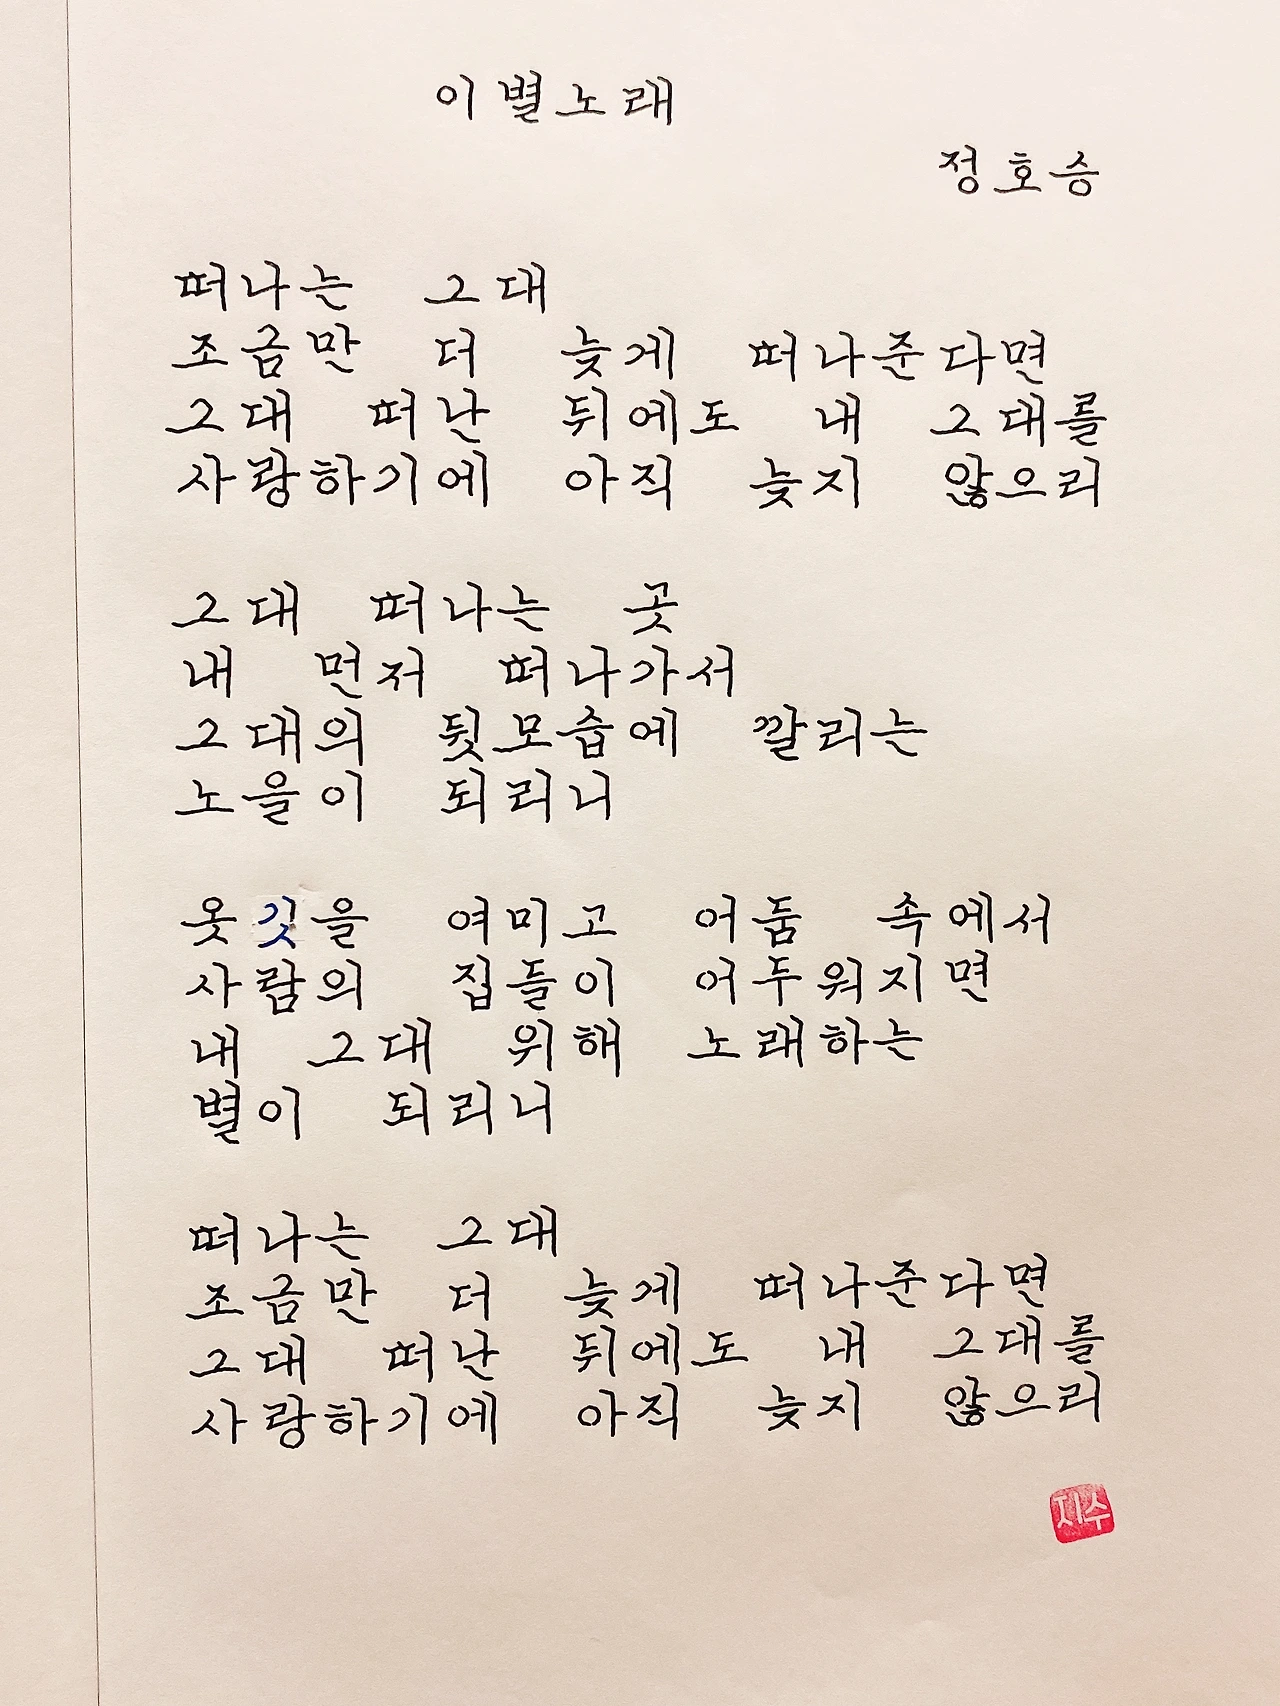 이별노래
정호승
떠나는 그대
조금만 더 늦게 떠나준다면
그대 떠난 뒤에도 내 그대를
사랑하기에 아직 늦지 않으리
그대 떠나는 곳
내 먼저 떠나가서
그대의 뒷모습에 깔리는
노을이 되리니
옷깃을 여미고 어둠 속에서
사람의 집들이 어두워지면
내 그대 위해 노래하는
별이 되리니
떠나는 그대
조금만 더 늦게 떠나준다면
그대 떠난 뒤에도 내 그대를
사랑하기에 아직 늦지 않으리
지수